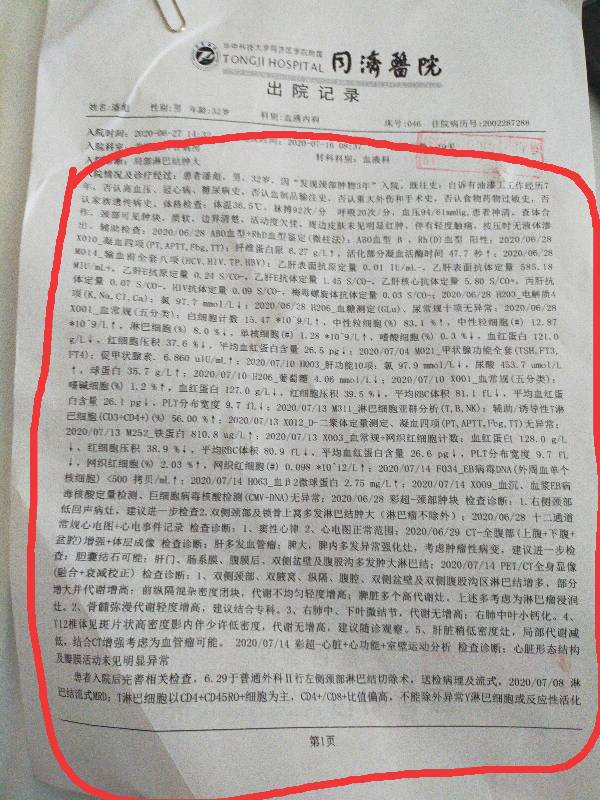 华中科技大学同济医学院附属
TONGJI HOSPITAL 同濟醫院
出院记录
姓名:潘彪 性别:男 年龄:32岁 科别:血液内科 床号:046 住院病历号:2002287288
入院时间:2020-06-27 14:32 2020-07-16 08:37
入院科室: 转科科别:血液科
局部淋巴结肿大
入院情况及诊疗经过:患者潘彪,男,32岁,因"发现颈部肿物3年"入院。既往史:自诉有油漆工工作经历7
年,否认高血压、冠心病、糖尿病史,否认血制品输注史,否认重大外伤和手术史,否认食物药物过敏史,否
认家族遗传病史。体格检查:体温36.5℃,脉搏92次/分 呼吸20次/分,血压94/81mmHg,患者神清,查体合
作,颈部可见肿块,质软,边界清楚,活动度欠佳,周边皮肤未见明显红肿,伴有轻度触痛,按压时无液体渗
出。辅助检查:2020/06/28 ABO血型+RhD血型鉴定(微柱法):ABO血型 B,Rh(D)血型 阳性;2020/06/28
X010_凝血四项(PT,APTT,Fbg,TT):纤维蛋白原 6.27 g/L↑,活化部分凝血活酶时间 47.7 秒↑;2020/06/28
M014_输血前全套八项(HCV,HIV,TP,HBV):乙肝表面抗原定量 0.01 IU/mL,乙肝表面抗体定量 585.18
MIU/mL+,乙肝E抗原定量 0.24 S/CO-,乙肝E抗体定量 1.45 S/CO-,乙肝核心抗体定量 5.80 S/CO+,丙肝抗
体定量 0.07 S/CO-,HIV抗体定量 0.09 S/CO-,梅毒螺旋体抗体定量 0.03 S/CO-;2020/06/28 H203_电解质4
项(K,Na,Cl,Ca):氯 97.7 mmol/L↓;2020/06/28 H206_血糖测定(GLu)、尿常规十项无异常;2020/06/28
X001_血常规(五分类):白细胞计数 15.47 *10^9/L↑,中性粒细胞(%) 83.1 %↑,中性粒细胞(#) 12.87
*10^9/L↑,淋巴细胞(%) 8.0 %↓,单核细胞(#) 1.28 *10^9/L↑,嗜酸细胞(%) 0.3 %↓,血红蛋白 121.0
g/L↓,红细胞压积 37.6 %↓,平均血红蛋白含量 26.5 pg↓;2020/07/04 M021_甲状腺功能全套(TSH,FT3,
FT4):促甲状腺素 6.860 uIU/mL↑;2020/07/10 H003_肝功能10项:氯 97.9 mmol/L↓,尿酸 453.7 umol/L
↑,球蛋白 35.7 g/L↑;2020/07/10 H206_葡萄糖 4.06 mmol/L↓;2020/07/10 X001_血常规(五分类):
嗜碱细胞(%) 1.2 %↑,血红蛋白 127.0 g/L↓,红细胞压积 39.5 %↓,平均RBC体积 81.1 fL↓,平均血红蛋白
含量 26.1 pg↓,PLT分布宽度 9.7 fL↓;2020/07/13 M311_淋巴细胞亚群分析(T,B,NK):辅助/诱导性T淋
巴细胞(CD3+CD4+)(%) 56.00 %↑;2020/07/13 X012_D-二聚体定量测定、凝血四项(PT,APTT,Fbg,TT)无异常;
2020/07/13 M252_铁蛋白 810.8 ug/L↑;2020/07/13 X003_血常规+网织红细胞计数:血红蛋白 128.0 g/L
↓,红细胞压积 38.9 %↓,平均RBC体积 80.9 fL↓,平均血红蛋白含量 26.6 pg↓,PLT分布宽度 9.7 fL
↓,网织红细胞(%) 2.03 %↑,网织红细胞(#) 0.098 *10^12/L↑;2020/07/14 F034_EB病毒DNA(外周血单个
核细胞) <500 拷贝/mL↑;2020/07/14 H063_血β2微球蛋白 2.75 mg/L↑;2020/07/14 X009_血沉、血浆EB病
毒核酸定量检测、巨细胞病毒核酸检测(CMV-DNA)无异常;2020/06/28 彩超-颈部肿块 检查诊断:1.右侧颈部
低回声病灶,建议进一步检查2.双侧颈部及锁骨上窝多发淋巴肿大(淋巴瘤不除外);2020/06/28 十二通道
常规心电图+心电事件记录 检查诊断:1、窦性心律 2、心电图正常范围;2020/06/29 CT-全腹部(上腹+下腹+
盆腔)增强+体层成像 检查诊断:肝多发血管瘤;脾大,脾内多发异常强化灶,考虑肿瘤性病变,建议进一步检
查;胆囊结石可能;肝门、肠系膜、腹膜后、双侧盆壁及腹股沟多发肿大淋巴结;2020/07/14 PET/CT全身显像
(融合+衰减校正) 检查诊断:1、双侧颈部、双腋窝、纵隔、腹腔、双侧盆壁及双侧腹股沟区淋巴结增多,部分
增大并代谢增高;前纵隔混杂密度团块,代谢不均匀轻度增高;脾脏多个高代谢灶,上述多考虑为淋巴瘤浸润
灶。2、骨髓弥漫代谢轻度增高,建议结合专科。3、右肺中、下叶微结节,代谢无增高;右肺中叶小钙化。4、
T12椎体见斑片状高密度影内伴少许低密度,代谢无增高,建议随诊观察。5、肝脏稍低密度灶,局部代谢减
低,结合CT增强考虑为血管瘤可能。 2020/07/14 彩超-心脏+心功能+室壁运动分析 检查诊断:心脏形态结构
及瓣膜活动未见明显异常
患者入院后完善相关检查,6.29于普通外科II行左侧颈部淋巴结切除术,送检病理及流式。2020/07/08 淋
巴结流式MRD:T淋巴细胞以CD4+CD45RO+细胞为主,CD4+/CD8+比值偏高,不能除外异常T淋巴细胞或反应性活化
第1页